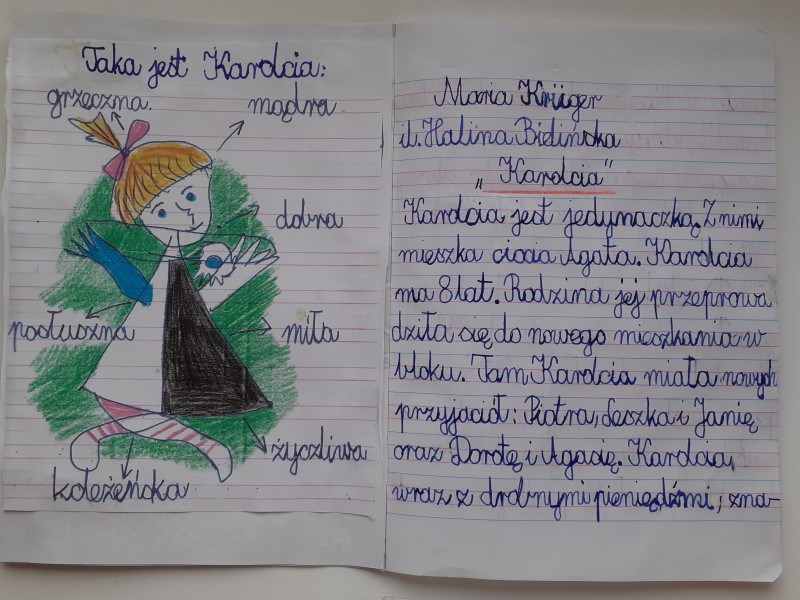 Taka jest Karolcia:
grzeczna.
mądra
dobra
posłuszna
miła
życzliwa
koleżeńska
Maria Krüger
il. Halina Bielińska
„Karolcia”
Karolcia jest jedynaczką. Z nimi
mieszka ciocia Agata. Karolcia
ma 8 lat. Rodzina jej przeprowa
dziła się do nowego mieszkania w
bloku. Tam Karolcia miała nowych
przyjaciół: Piotra, Leszka i Janię
oraz Dorotę i Agasię. Karolcia,
wraz z drobnymi pieniędźmi, zna-